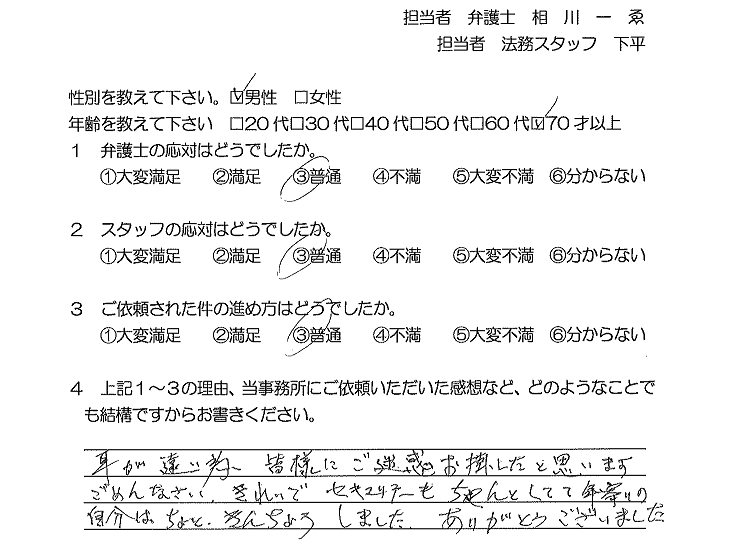 担当者 弁護士 相 川 一 ゑ
担当者 法務スタッフ 下平
性別を教えて下さい。☑男性 □女性
年齢を教えて下さい □20代□30代□40代□50代□60代☑70才以上
1 弁護士の応対はどうでしたか。
①大変満足 ②満足 ③普通 ④不満 ⑤大変不満 ⑥分からない
2 スタッフの応対はどうでしたか。
①大変満足 ②満足 ③普通 ④不満 ⑤大変不満 ⑥分からない
3 ご依頼された件の進め方はどうでしたか。
①大変満足 ②満足 ③普通 ④不満 ⑤大変不満 ⑥分からない
4 上記1~3の理由、当事務所にご依頼いただいた感想など、どのようなことで
も結構ですからお書きください。
耳が遠い為 皆様にご迷惑お掛したと思います
ごめんなさい、きれいで セキュリテーも ちゃんとしてて 年寄りの
自分は ちょと、きんちょう しました ありがとうございました